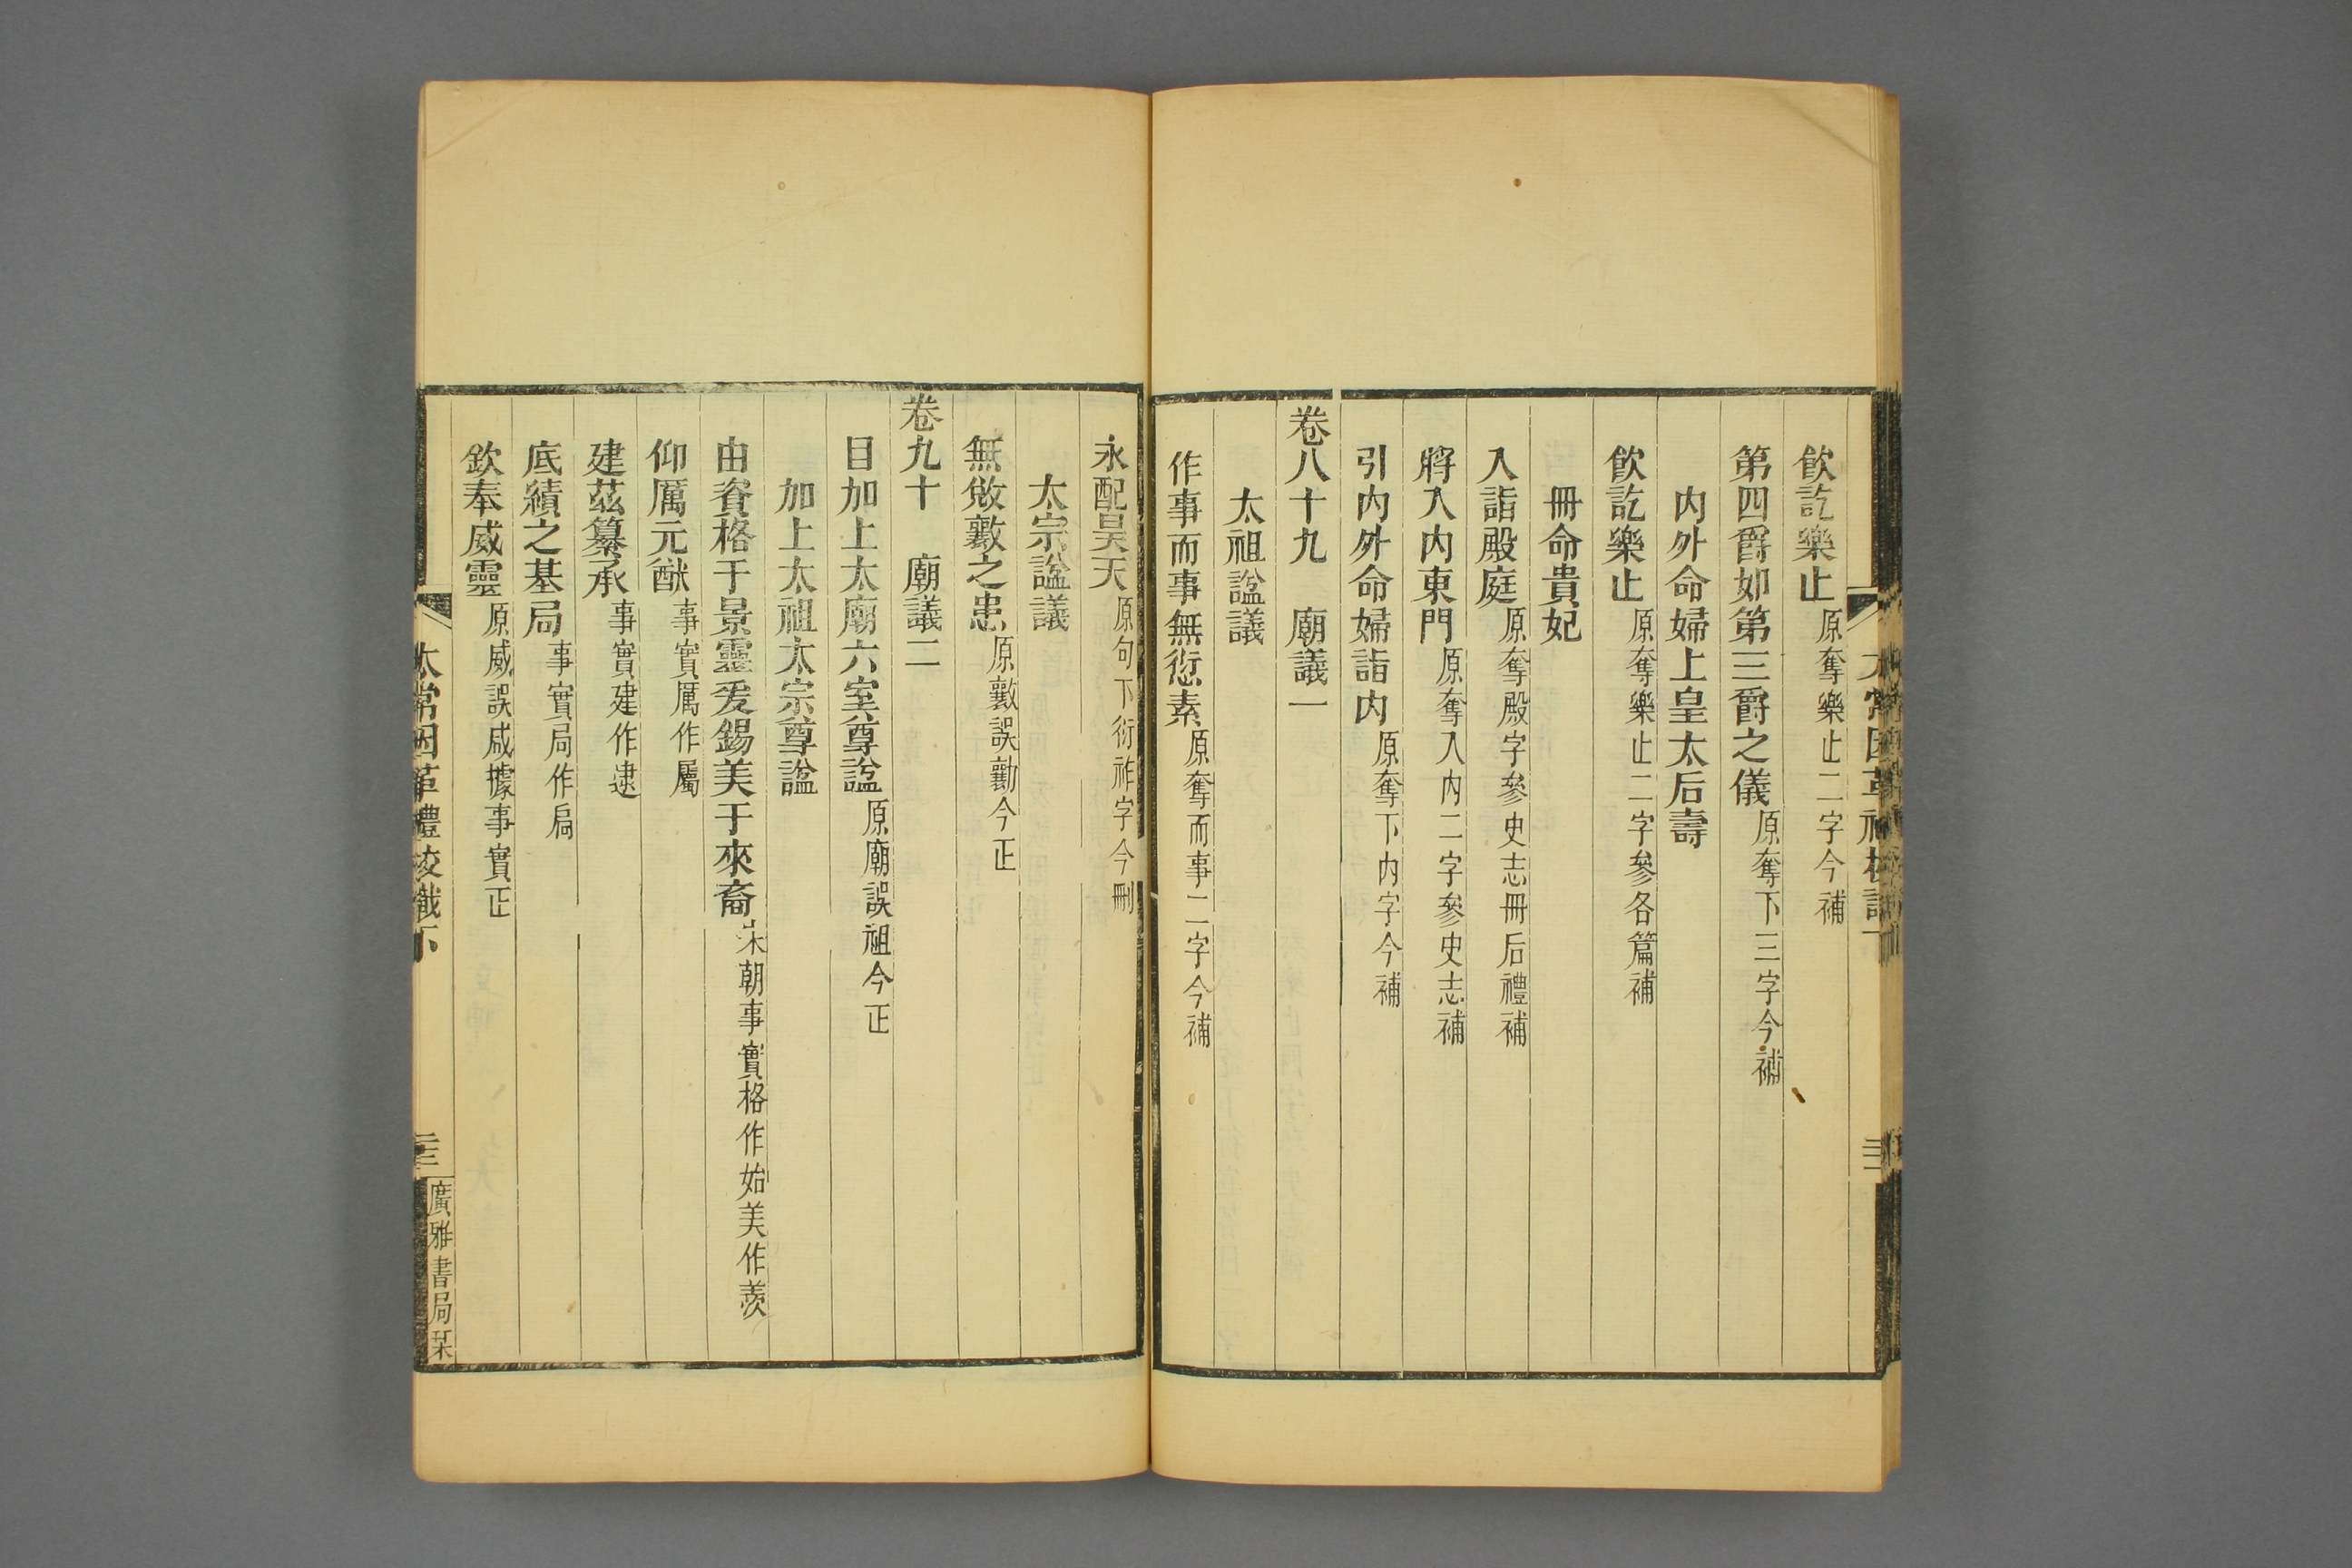 飮訖樂止原奪樂止二字今補
第四爵如第三爵之儀原奪下三字今補
內外命婦上皇太后壽
飮訖樂止原奪樂止二字參各篇補
冊命貴妃
入詣殿庭原奪殿字參史志冊后禮補
將入內東門原奪入內二字參史志補
引內外命婦詣內原奪下內字今補
卷八十九 廟議一
太祖諡議
作事而事無愆素原奪而事二字今補
永配昊天原句下衍祚字今刪
太宗諡議
無斁之患今正
卷九十 廟議二
目加上太廟六室尊諡原廟誤祖今正
加上太祖太宗尊諡
由資格于景靈爰錫美于來裔宋朝事實格作始美作羨
仰厲元猷事實厲作屬
建茲纂承事實建作逮
底績之基局事實局作扃
欽奉威靈原威誤咸據事實正
太常因革禮校識下
三
廣雅書局栞